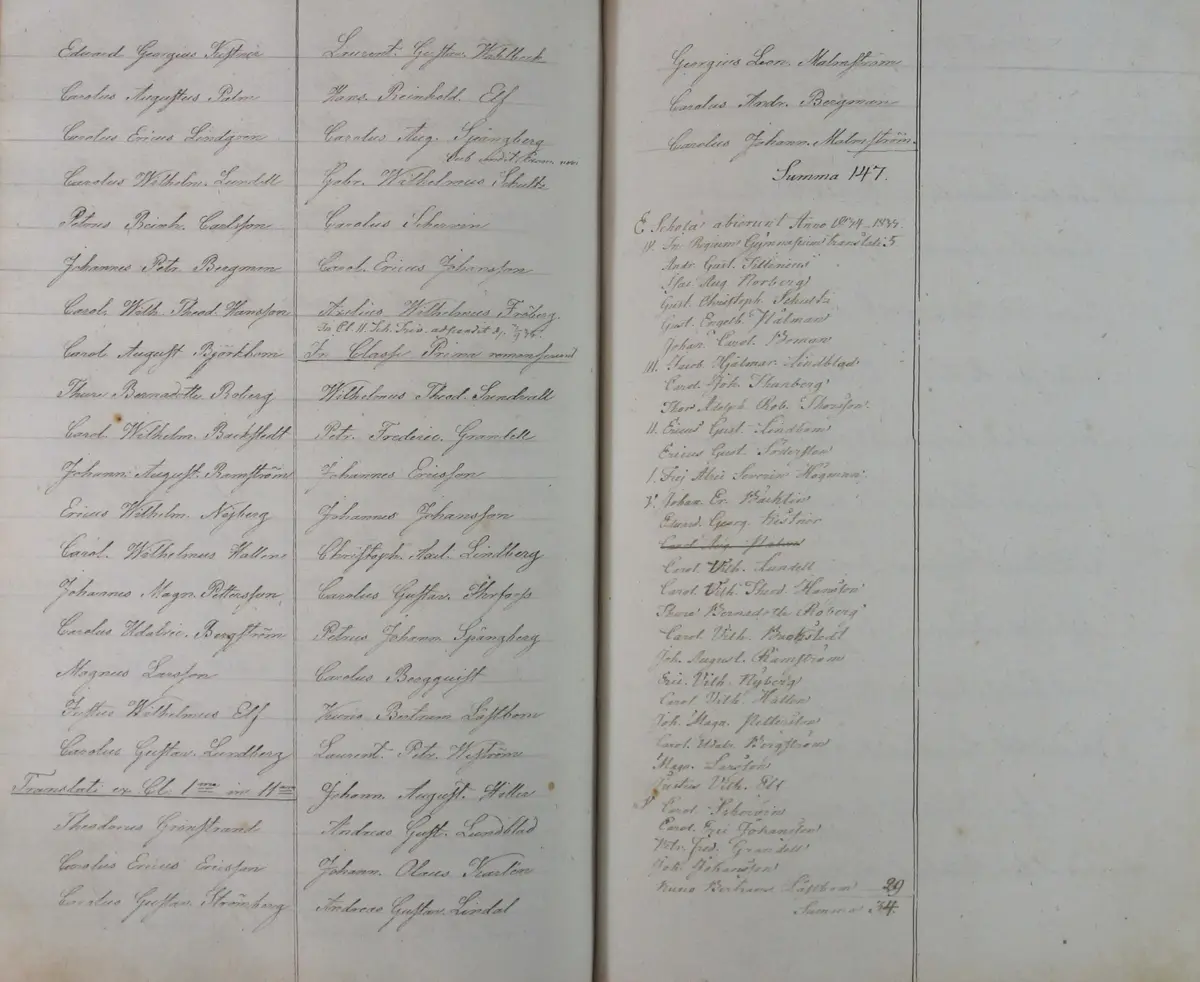 Edvard Georgius Kistner
Carolus Augustus Palm
Carolus Ericus Lindgren
Carolus Wilhelm. Lundell
Petrus Reinh. Carlsson
Johannes Petr. Bergman
Carol. Wilh. Theod. Hansson
Carol. August Björkbom
Thure Bernadotte Roberg
Carol. Wilhelm. Backstedt
Johann. August. Ramström
Ericus Wilhelm. Nyberg
Carol. Wilhelmus Hallene
Johannes Magn. Pettersson
Carolus Udalric. Bergström
Magnus Larsson
Justus Wilhelmus Elf
Carolus Gustav. Lundberg
Translati ex Cl. 1ma in 11am
Theodorus Grönstrand
Carolus Ericus Ericsson
Carolus Gustav. Strömberg
Laurent. Gustav. Wahlbeck
Hans Reinhold. Elf
Carolus Aug. Spångberg
Gabr. Wilhelmus Schultz
Carolus Scherwin
Carol. Ericus Johansson
Axelius Wilhelmus Fröberg
In Classe Prima remanserunt
Wilhelmus Theod. Sundvall
Petr. Frederic. Grandell
Johannes Ericsson
Johannes Johansson
Christoph. Axel. Lindberg
Carolus Gustav.
Petrus Johann Spångberg
Carolus Bergquist
Kuno Bertram Läfbom
Laurent. Petr. Wiström
Johann. August. Höller
Andreas Gust. Lundblad
Johann. Olaus
Andreas Gustav. Lindal
Georgius Leon. Malmström
Carolus Andr. Bergman
Carolus Johann. Malmström.
Summa 147.
E Schola abierunt Anno 1834-1835.
IV. In Regium Gymnasium translati 5
Andr. Gust.
Isac Aug. Norberg
Gust. Christoph. Schultz
Gust. Engelb. Hälman
Johan. Carol. Boman
III. Jacob. Hjalmar Lindblad
Carol. Joh. Stanberg
Thor Adolph Rob. Thorsson.
II. Ericus Gust. Lindbom
Ericus Gust. Söderston
1. Frij Alric Högman
Johan. Er. Bäcklin
Edvard. Georg. Kistner
Carol. Vilh. Lundell
Carol. Vilh. Theod. Hanston
Thure Bernadotte Roberg
Carol. Vilh. Backstedt
Joh. August. Ramström
Eric. Vilh. Nyberg
Carol. Vilh. Hallen
Joh. Magn. Petterston
Carol. Udalr. Bergström
Magn. Larston
Justus Vilh. Elf
Carol. Scherwin
Carol. Eric Johanston
Petr. Fred. Grandell
Joh. Johanston
Kuno Bertram Läfbom 29
Summa 34.